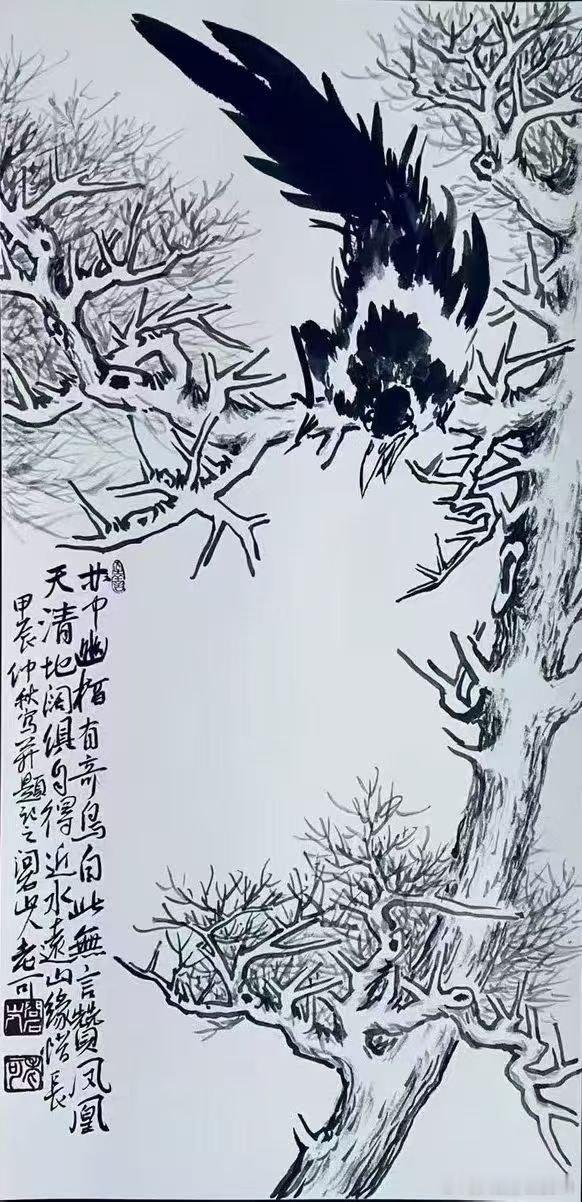 世中幽栖有奇鸟自此無言贊凤凰
天清地阔俱自得近水遠山缘偕長
甲辰仲秋写并題記之 山人老可